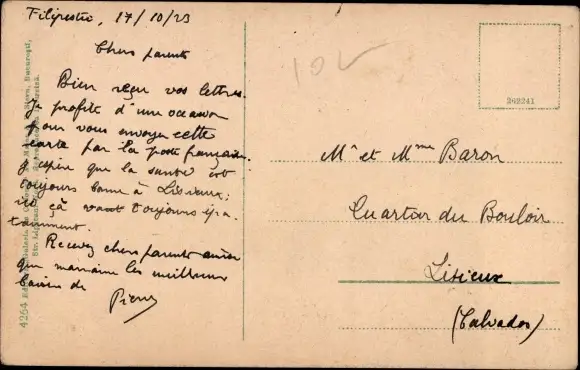 Filipestii, 17/10/23
Chers parents
Bien reçu vos lettres.
Je profite d'une occasion
pour vous envoyer cette
carte par la poste française.
J'espère que la santé est
toujours bonne à Lisieux;
ici çà va toujours
Recevez chers parents ainsi
que mamaine les meilleurs
baisers de
Pierre
262241
Mr et Mme Baron
Quartier du Bouloir
Lisieux
(Calvados)
4264